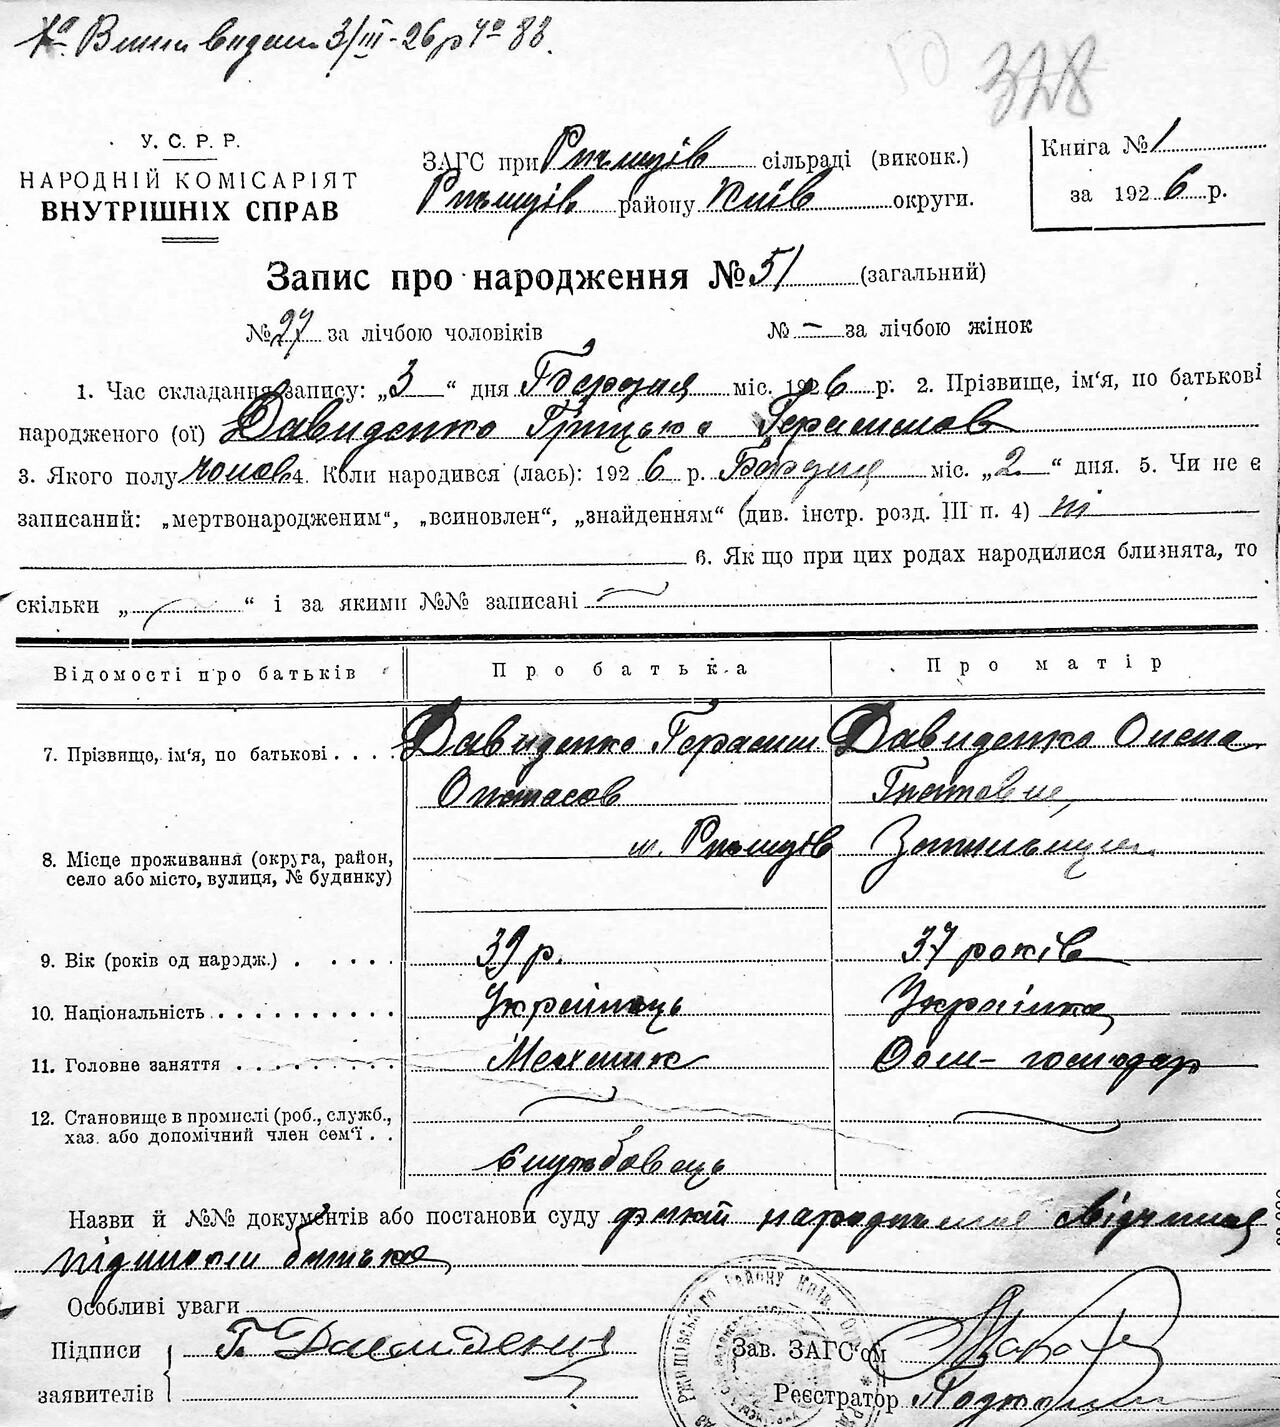 видано 3/III-26р № 88.
50 328
У. С. Р. Р.
НАРОДНІЙ КОМІСАРІЯТ
ВНУТРІШНІХ СПРАВ
ЗАГС при Ржищів сільраді (виконк.)
Ржищів району Київ округи.
Книга № 1
за 1926 р.
Запис про народження № 51 (загальний)
№ 27 за лічбою чоловіків № — за лічбою жінок
1. Час складання запису: „3“ дня Березня міс. 1926 р. 2. Прізвище, ім'я, по батькові
народженого (ої) Давиденко Грицько Герасимов
3. Якого полу чолов 4. Коли народився (лась): 1926 р. Березня міс. „2“ дня. 5. Чи не є
записаний: „мертвонародженим“, „всиновлен“, „знайденням“ (див. інстр. розд. III п. 4) ні
6. Як що при цих родах народилися близнята, то
скільки „ “ і за якими №№ записані
Відомості про батьків Про батька Про матір
7. Прізвище, ім'я, по батькові . . . . Давиденко Герасим Давиденко Олена
Опанасов
8. Місце проживання (округа, район, м. Ржищів
село або місто, вулиця, № будинку)
9. Вік (років од народж.) . . . . . 39 р. 37 років
10. Національність . . . . . . . . . . Українець Українка
11. Головне заняття . . . . . . . . . Дом-господар
12. Становище в промислі (роб., служб.,
хаз. або допомічний член сем'ї . .
Службовець
Назви й №№ документів або постанови суду факт народження свідчиться
підписом батька
Особливі уваги
Підписи Г. Давиденко Зав. ЗАГС'ом
заявителів Реєстратор